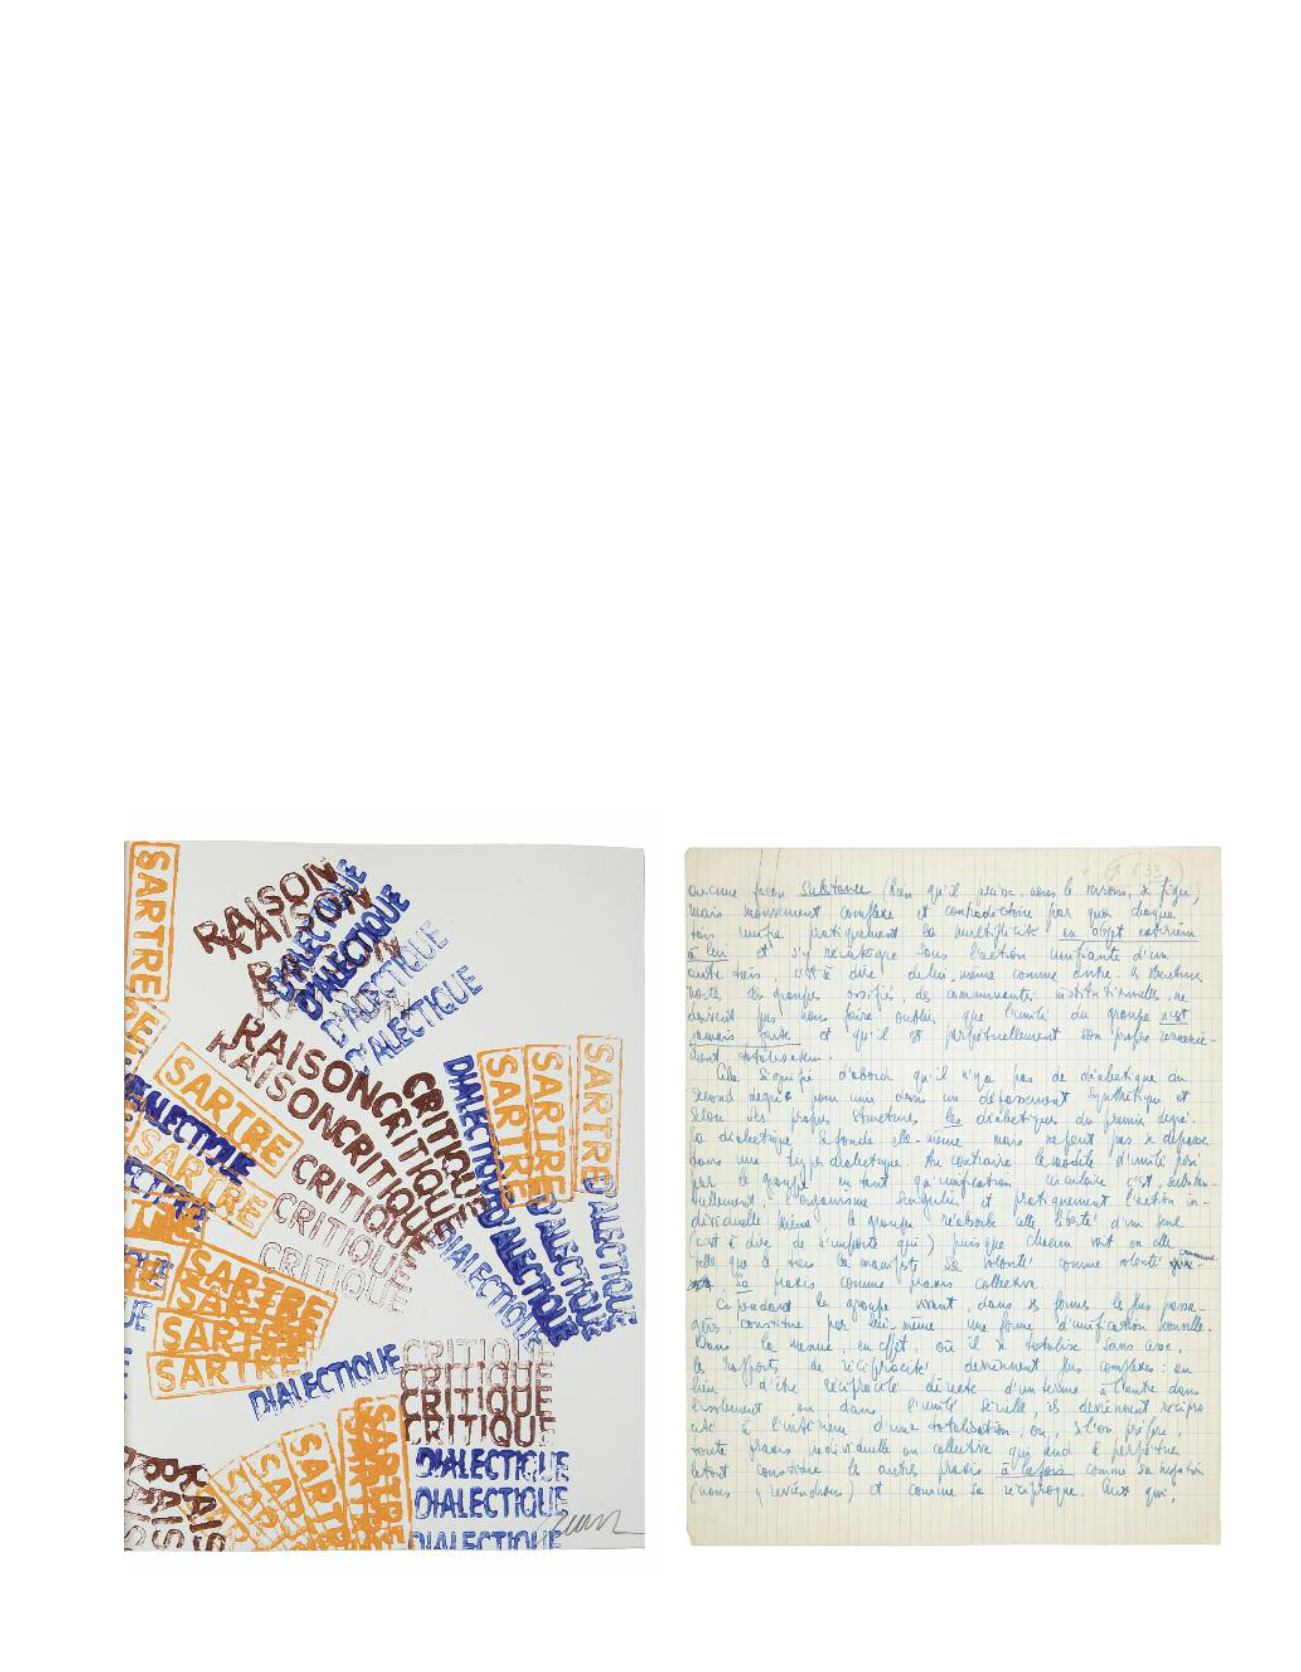 SARTRE
RAISON
RAISON
DIALECTIQUE
D'ALECTIQUE
D'ALECTIQUE
D'ALECTIQUE
RAISON CRITIQUE
RAISON CRITIQUE
CRITIQUE
CRITIQUE
CRITIQUE
CRITIQUE
DIALECTIQUE
SARTRE
SARTRE
SARTRE
D'ALECTIQUE
D'ALECTIQUE
D'ALECTIQUE
DIALECTIQUE
SARTRE
SARTRE
SARTRE
SARTRE
SARTRE
SARTRE
DIALECTIQUE
CRITIQUE
CRITIQUE
CRITIQUE
CRITIQUE
DIALECTIQUE
DIALECTIQUE
DIALECTIQUE
SARTRE
aucune façon substance (bien qu'il puisse, nous le verrons, se figer)
mais mouvement complexe et contradictoire par quoi chaque
tiers unifie pratiquement la multiplicité en objet extérieur
à lui et s'y réintègre sous l'action unifiante d'un
autre tiers, c'est à dire de lui-même comme autre. les structures
des groupes ossifiés, des communautés institutionnelles, ne
doivent pas nous faire oublier que l'unité du groupe n'est
jamais faite et qu'il est perpétuellement son propre remanie-
ment totalisateur.
Cela signifie d'abord qu'il n'y a pas de dialectique du
second degré pour unir dans un dépassement synthétique et
selon ses propres structures les dialectiques du premier degré.
la dialectique se fonde elle-même mais ne peut pas se dépasser
dans une hyperdialectique. Au contraire le modèle d'unité posé
par le groupe en tant qu'unification circulaire c'est, substan-
tiellement, l'organisme singulier et pratiquement l'action in-
dividuelle même, le groupe réabsorbe cette liberté d'un seul
(c'est à dire de n'importe qui) puisque chacun voit en elle
telle que le tiers la manifeste sa volonté comme volonté commune
sa praxis comme praxis collective.
Cependant le groupe vivant, dans ses formes les plus passa-
gères, constitue par lui-même une forme d'unification nouvelle.
Dans la mesure, en effet, où il se totalise sans cesse,
les rapports de réciprocité deviennent plus complexes : au
lieu d'être réciprocité directe d'un terme à l'autre dans
l'isolement ou dans l'unité sérielle, ils deviennent récipro
cité à l'intérieur d'une totalisation, ou, si l'on préfère,
toute praxis individuelle ou collective qui tend à perpétuer
le tout constitue les autres praxis à la fois comme sa
(nous y reviendrons) et comme sa réciproque. Ceux qui,